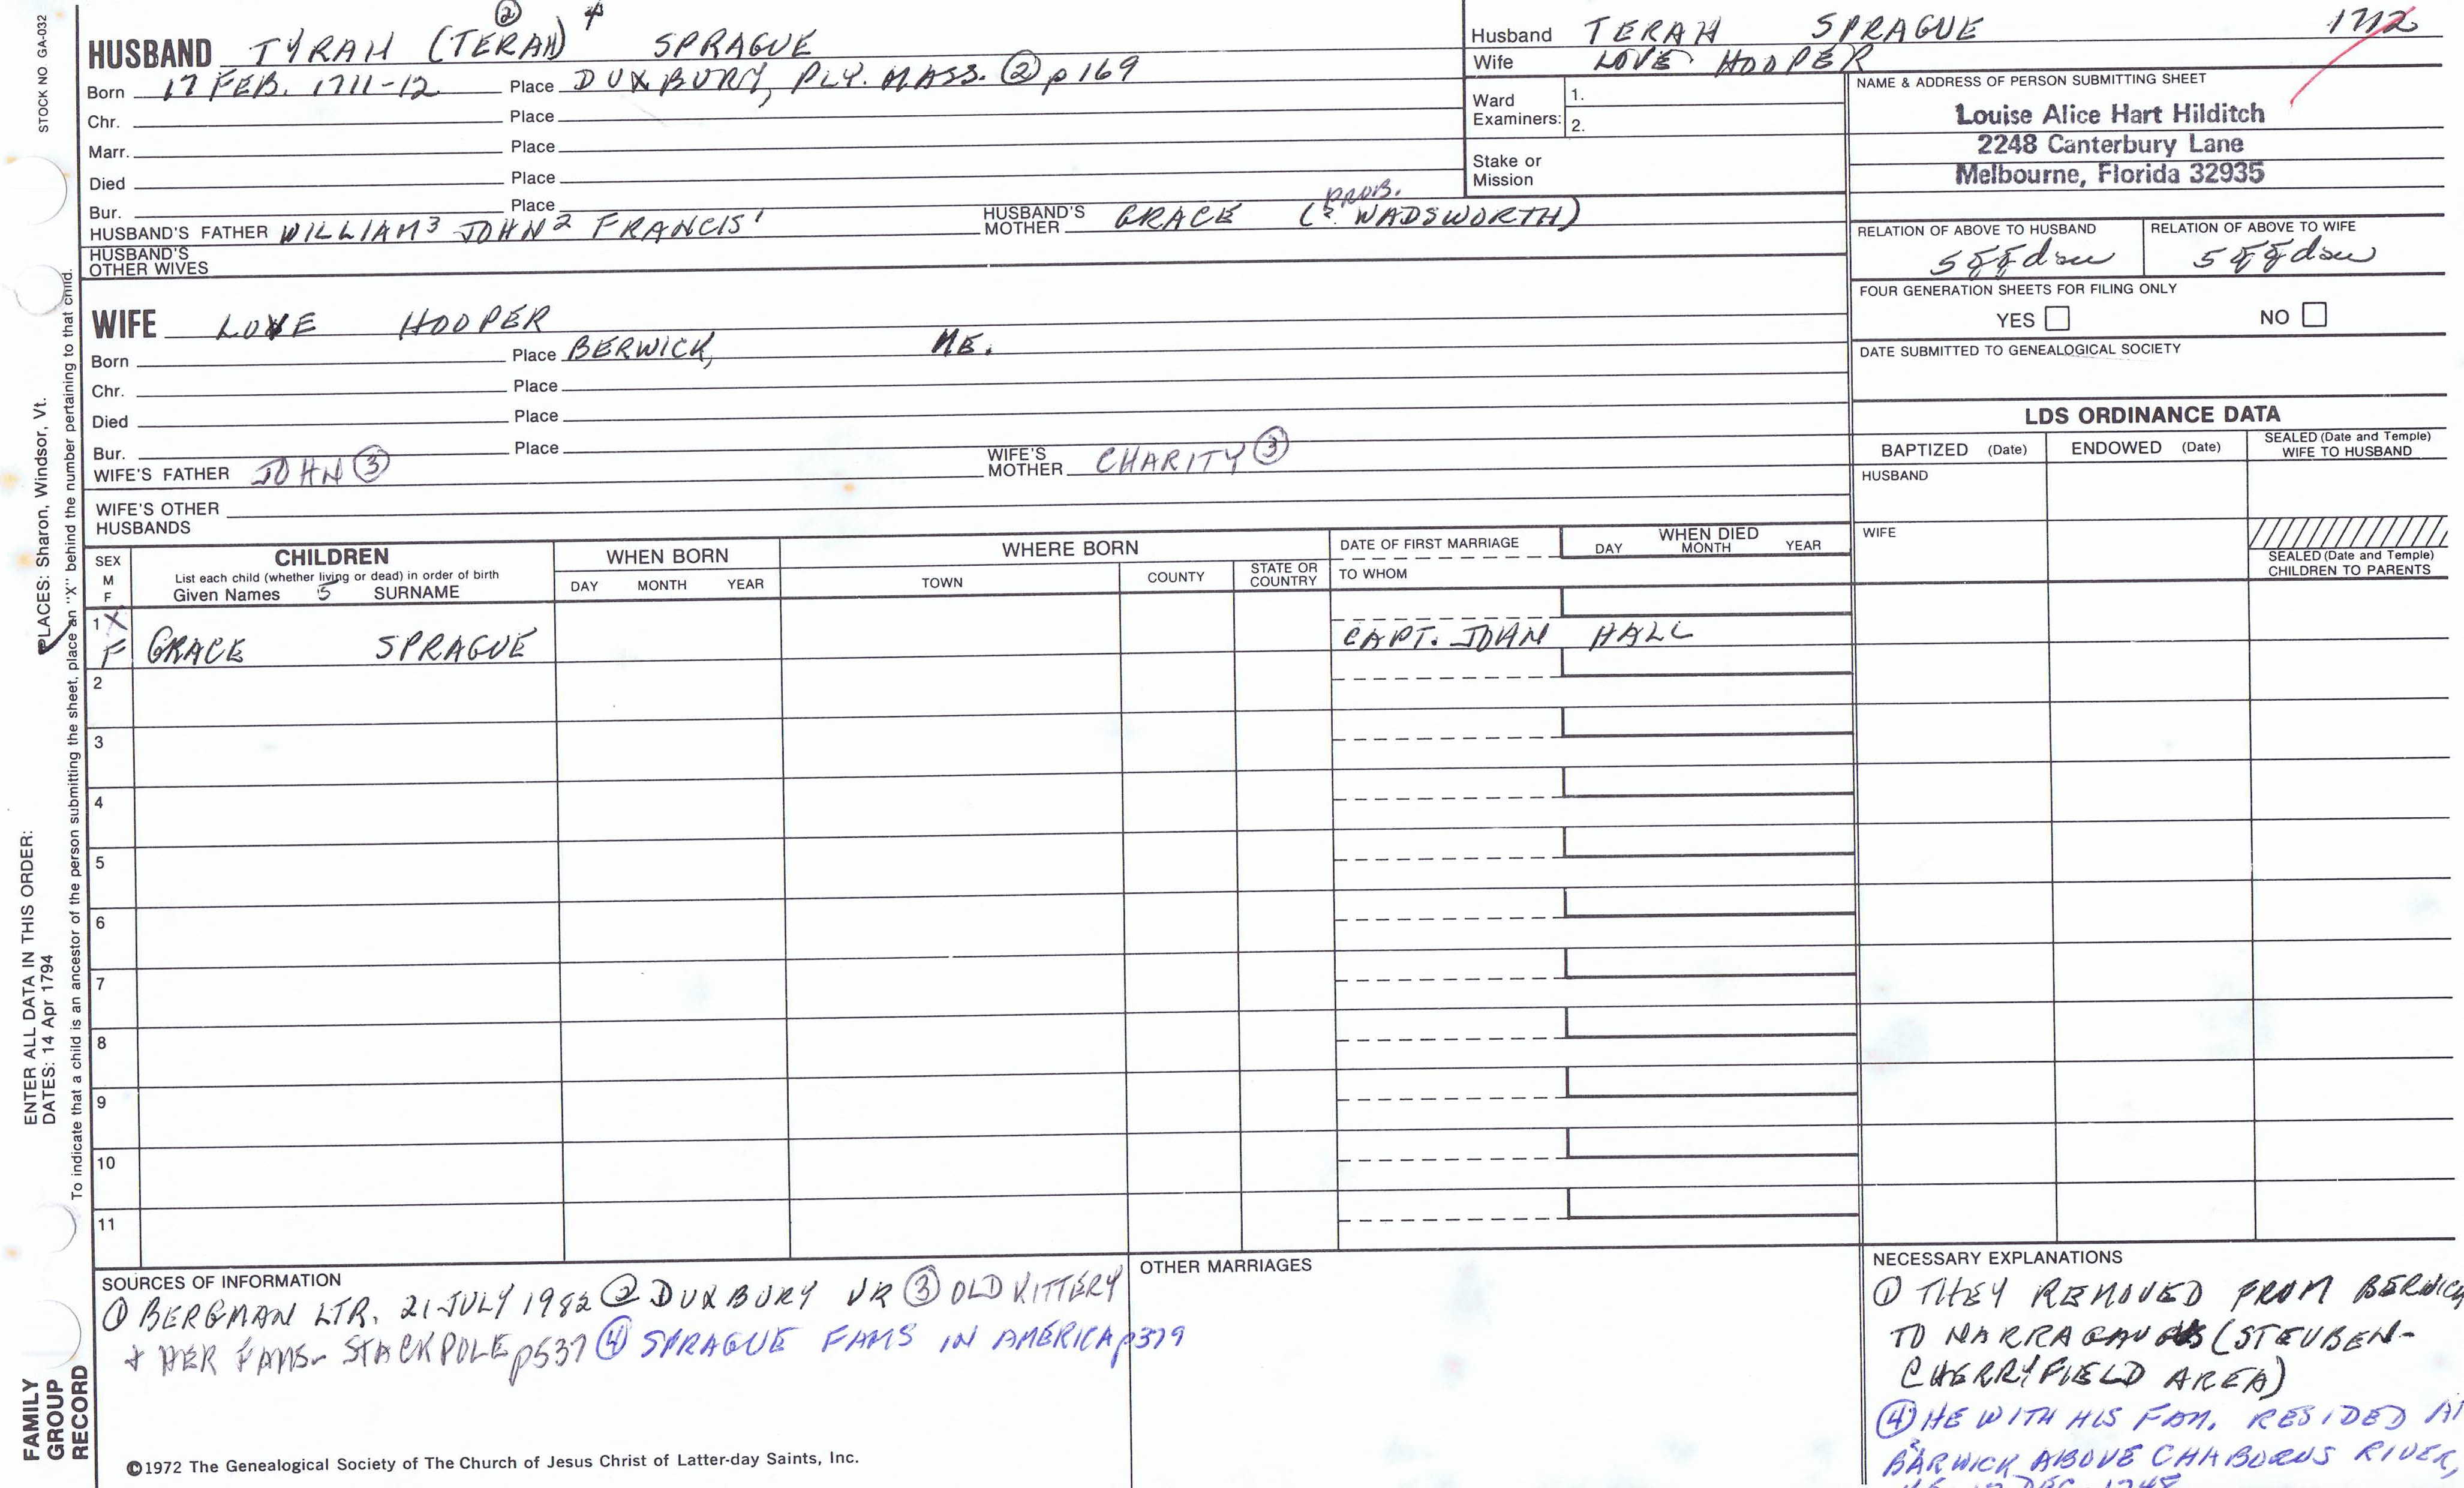 STOCK NO GA-032
PLACES: Sharon, Windsor, Vt.
ENTER ALL DATA IN THIS ORDER:
DATES: 14 Apr 1794
To indicate that a child is an ancestor of the person submitting the sheet, place an "X" behind the number pertaining to that child.
FAMILY GROUP RECORD
② 4
HUSBAND TYRAH (TERAH) SPRAGUE
Born 17 FEB. 1711-12 Place DUXBURY, PLY. MASS. ② p169
Chr. Place
Marr. Place
Died Place
Bur. Place
HUSBAND'S FATHER WILLIAM³ JOHN² FRANCIS¹ HUSBAND'S MOTHER GRACE (? PROB. WADSWORTH)
HUSBAND'S OTHER WIVES
WIFE LOVE HOOPER
Born Place BERWICK, ME.
Chr. Place
Died Place
Bur. Place
WIFE'S FATHER JOHN ③ WIFE'S MOTHER CHARITY ③
WIFE'S OTHER HUSBANDS
Husband TERAH SPRAGUE 1712
Wife LOVE HOOPER
Ward Examiners: 1.
2.
Stake or Mission
NAME & ADDRESS OF PERSON SUBMITTING SHEET
Louise Alice Hart Hilditch
2248 Canterbury Lane
Melbourne, Florida 32935
RELATION OF ABOVE TO HUSBAND RELATION OF ABOVE TO WIFE
FOUR GENERATION SHEETS FOR FILING ONLY
YES NO
DATE SUBMITTED TO GENEALOGICAL SOCIETY
LDS ORDINANCE DATA
BAPTIZED (Date) ENDOWED (Date) SEALED (Date and Temple) WIFE TO HUSBAND
HUSBAND
WIFE
SEALED (Date and Temple) CHILDREN TO PARENTS
SEX M F
CHILDREN
List each child (whether living or dead) in order of birth
Given Names 5 SURNAME
WHEN BORN
DAY MONTH YEAR
WHERE BORN
TOWN COUNTY STATE OR COUNTRY
DATE OF FIRST MARRIAGE
TO WHOM
WHEN DIED
DAY MONTH YEAR
1 X
F GRACE SPRAGUE CAPT. JOHN HALL
2
3
4
5
6
7
8
9
10
11
SOURCES OF INFORMATION
① BERGMAN LTR. 21 JULY 1982 ② DUXBURY VR ③ OLD KITTERY
+ HER FAMS- STACKPOLE p537 ④ SPRAGUE FAMS IN AMERICA p379
OTHER MARRIAGES
NECESSARY EXPLANATIONS
① THEY REMOVED FROM BERWICK
TO (STEUBEN-
CHERRYFIELD AREA)
④ HE WITH HIS FAM. RESIDED AT
BARWICK ABOVE CHABOURNS RIVER,
DEC. 1748
©1972 The Genealogical Society of The Church of Jesus Christ of Latter-day Saints, Inc.